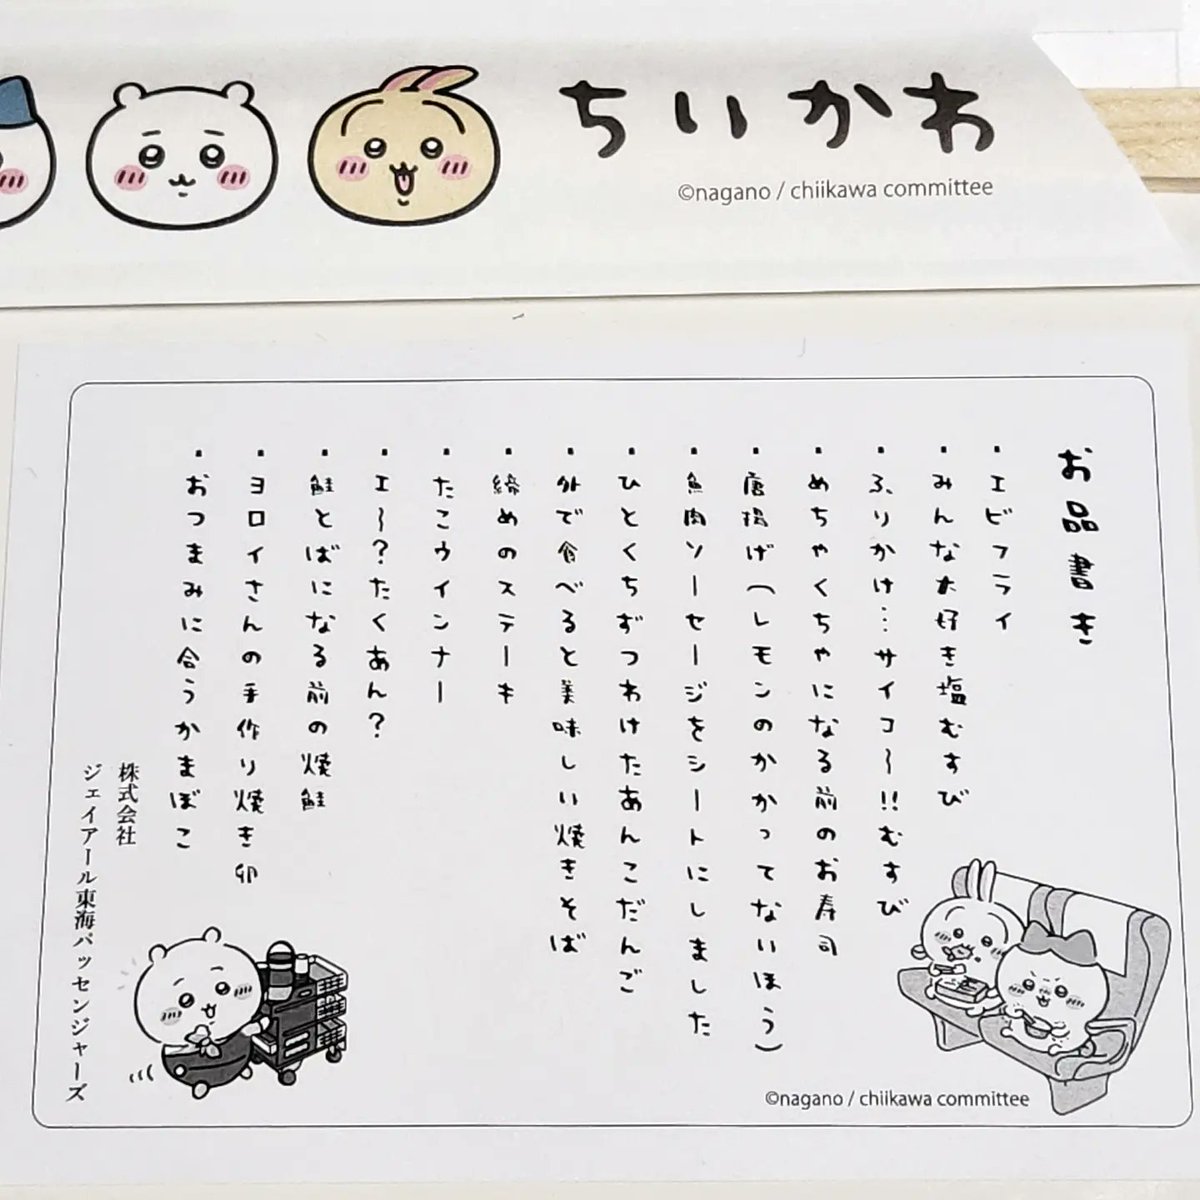 ちいかわ
©nagano / chiikawa committee
お品書き
・エビフライ
・みんな大好き塩むすび
・ふりかけ…サイコ〜!!むすび
・めちゃくちゃになる前のお寿司
・唐揚げ(レモンのかかってないほう)
・魚肉ソーセージをシートにしました
・ひとくちずつわけたあんこだんご
・外で食べると美味しい焼きそば
・締めのステーキ
・たこウインナー
・エ〜?たくあん?
・鮭とばになる前の焼鮭
・ヨロイさんの手作り焼き卵
・おつまみに合うかまぼこ
株式会社
ジェイアール東海パッセンジャーズ
©nagano / chiikawa committee